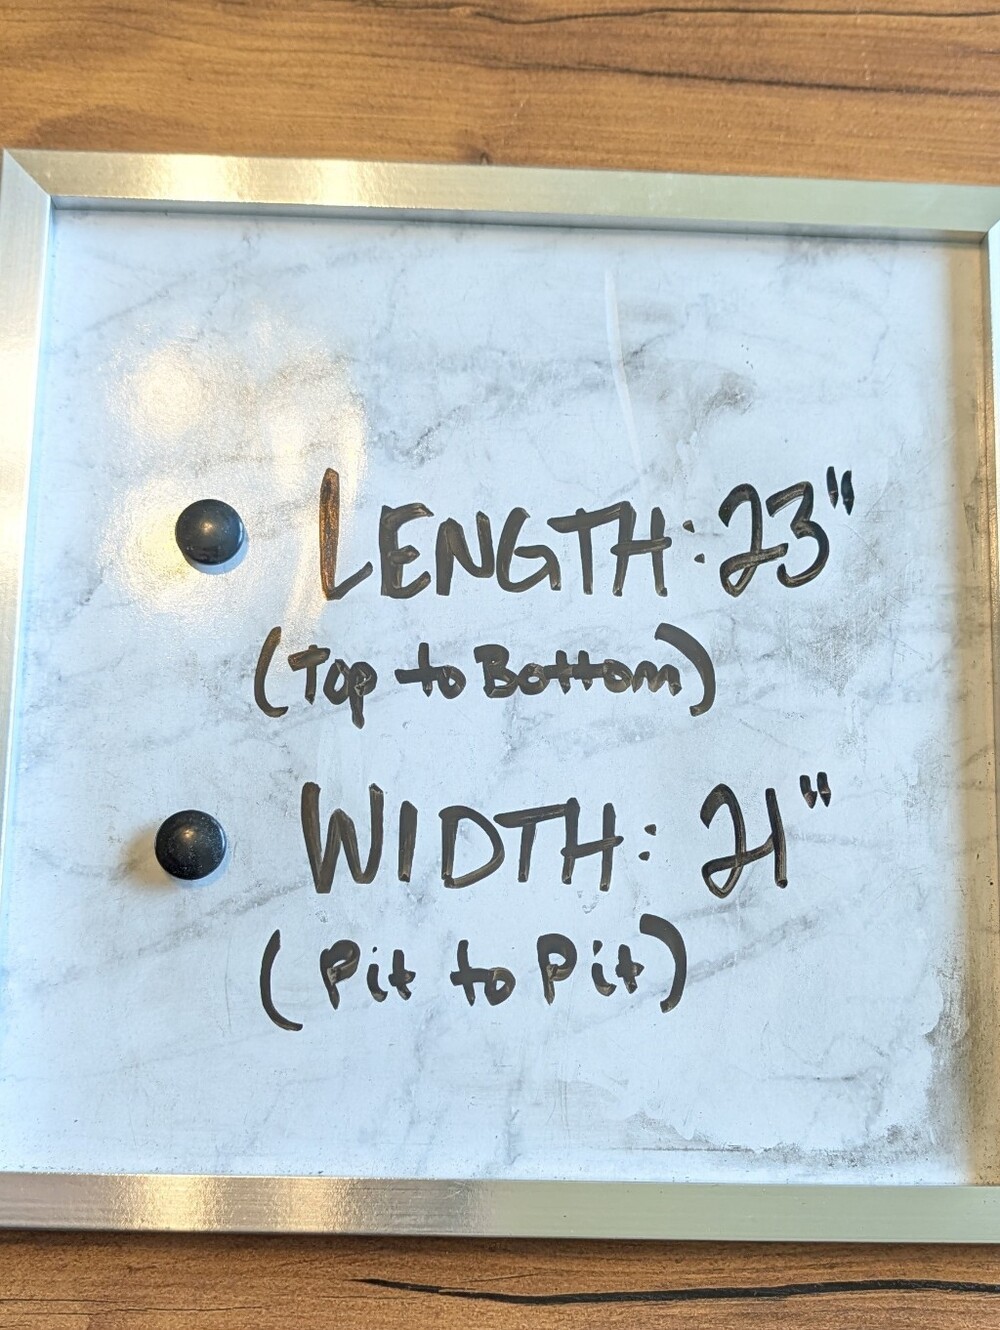 LENGTH: 23"
(Top to Bottom)
WIDTH: 21"
(Pit to Pit)